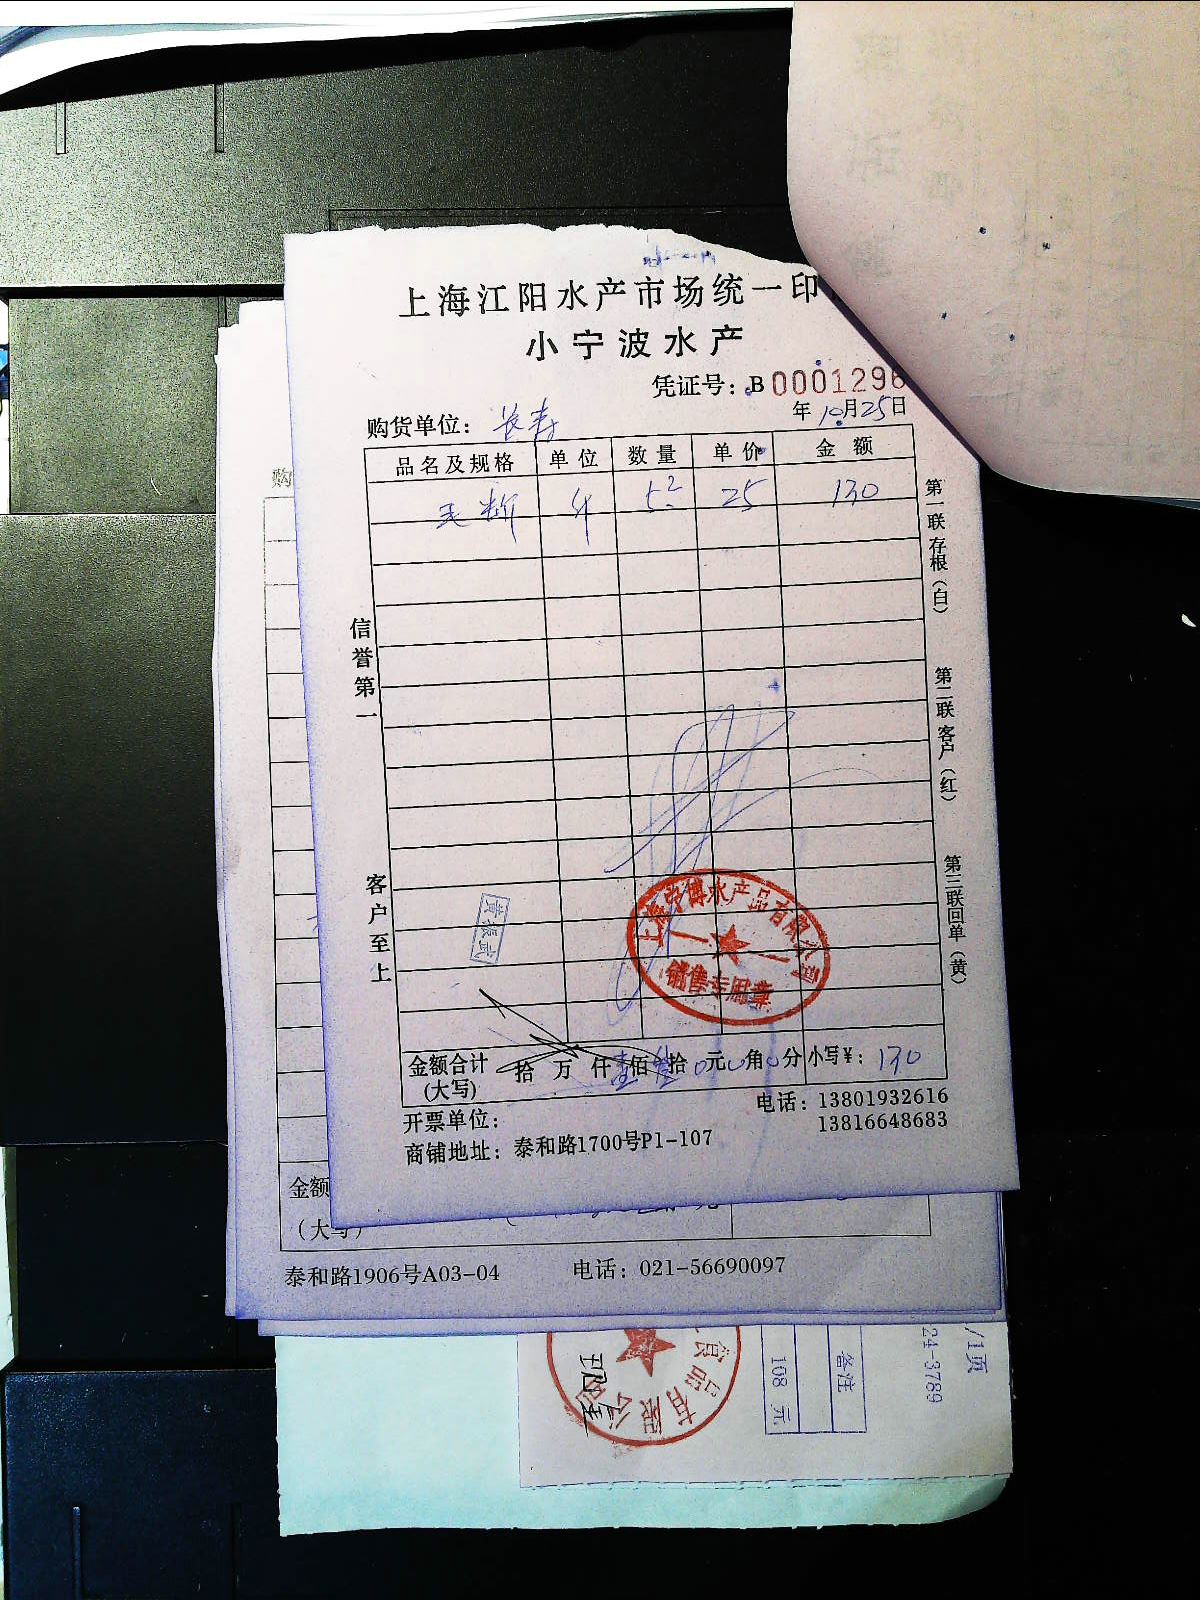 上海江阳水产市场统一印
小宁波水产
凭证号：B 0001296
年10月25日
购货单位：长寿
品名及规格 单位 数量 单价 金额
斤 5² 25 130
信誉第一
客户至上
第一联 存根（白）
第二联 客户（红）
第三联 回单（黄）
黄振武
上海宁博水产品有限公司
销售专用章
金额合计 拾 万 仟 壹佰 叁拾 0元 0角 0分 小写¥：130
（大写）
开票单位：
电话：13801932616
13816648683
商铺地址：泰和路1700号P1-107
购
金额
（大写）
泰和路1906号A03-04 电话：021-56690097
食品有限公司
备注
108 元
24-3789
/1页